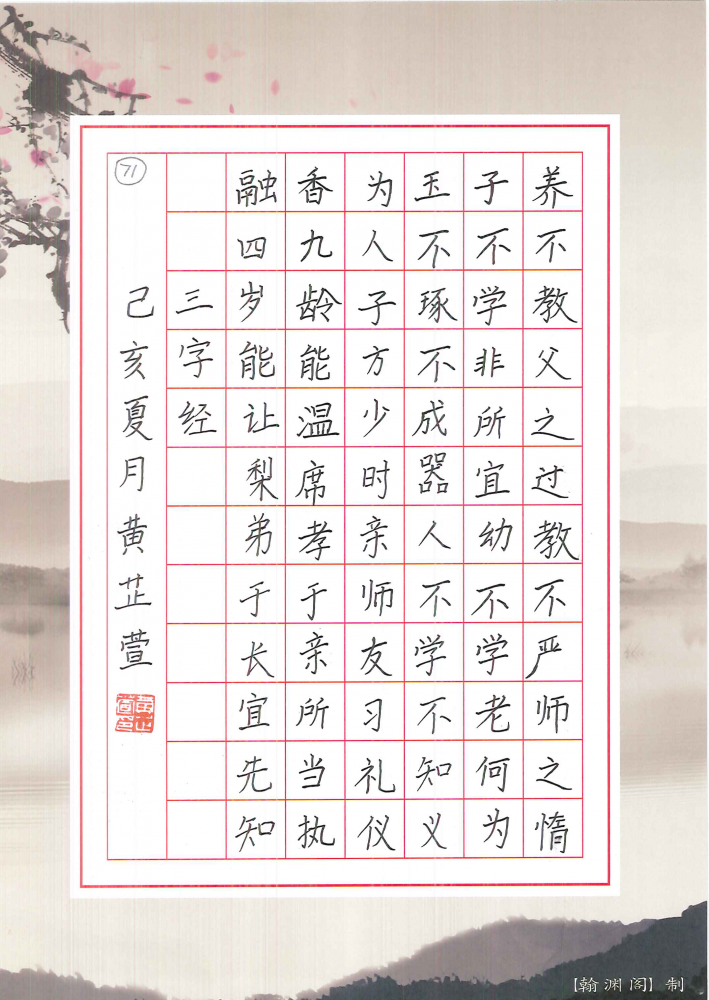 养不教父之过教不严师之惰
子不学非所宜幼不学老何为
玉不琢不成器人不学不知义
为人子方少时亲师友习礼仪
香九龄能温席孝于亲所当执
融四岁能让梨弟于长宜先知
三字经
71
己亥夏月黄芷萱
【翰渊阁】制